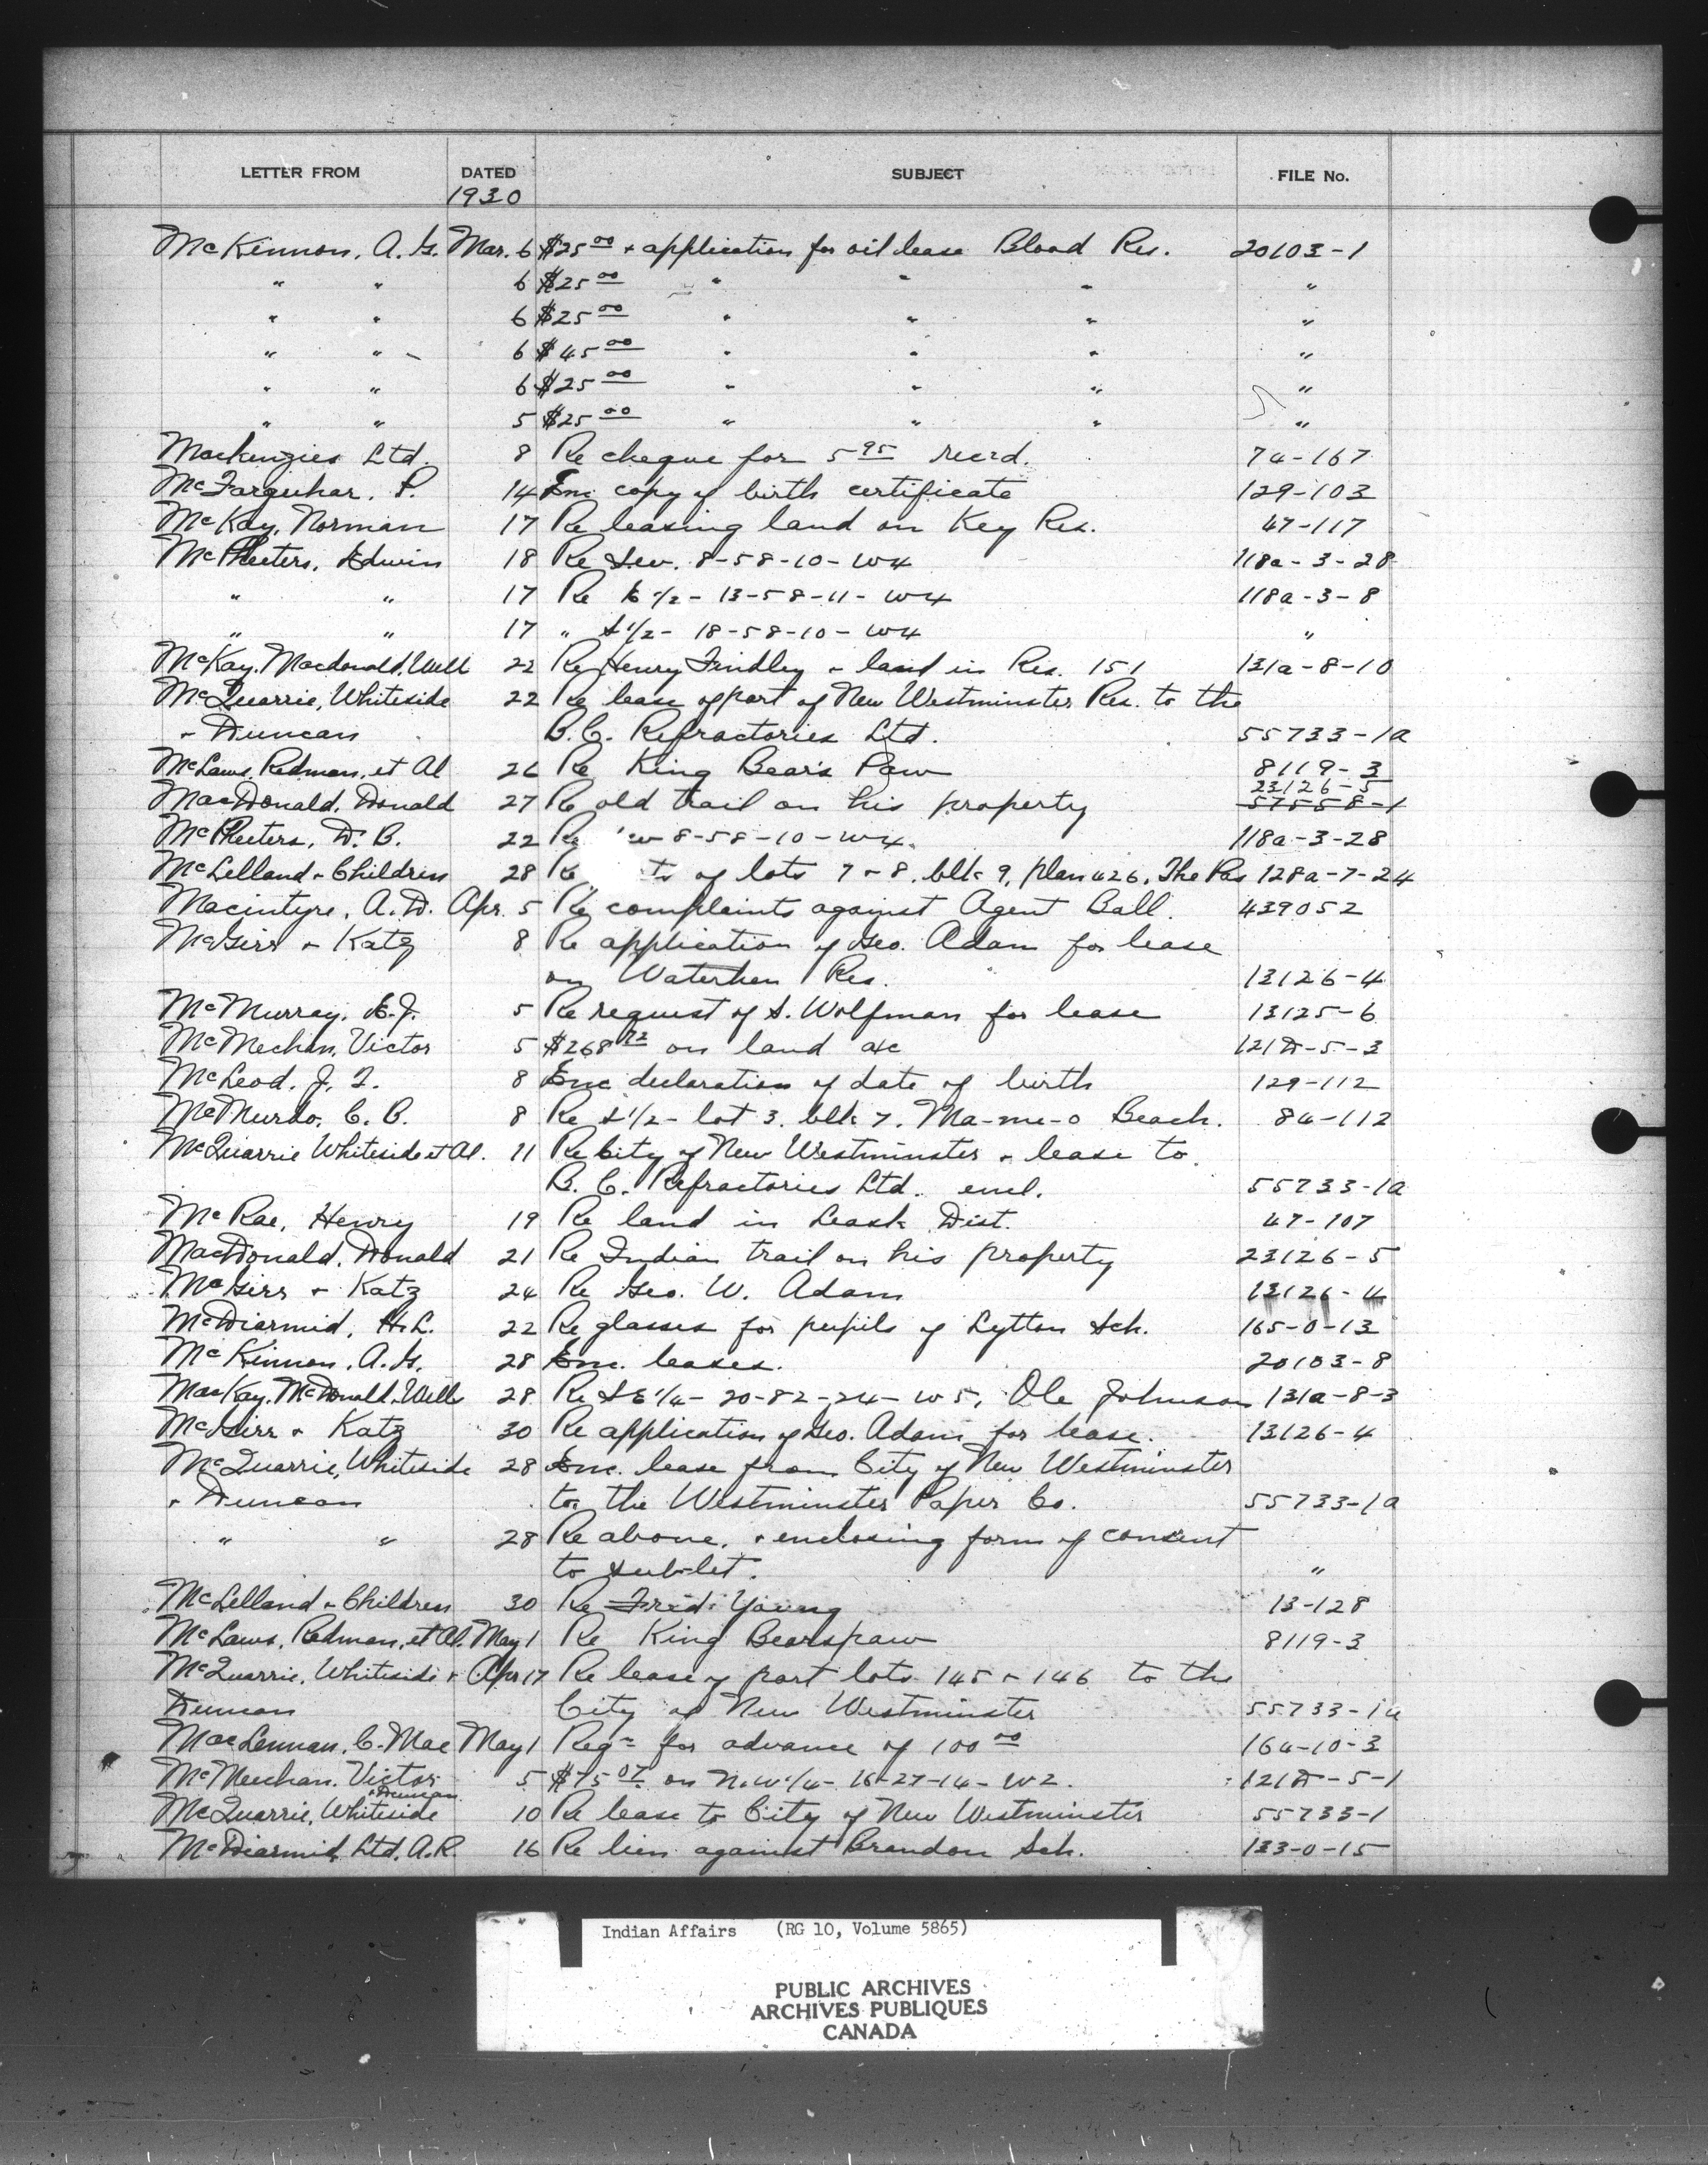 LETTER FROM DATED SUBJECT FILE No.
1930
McKinnon, A. G. Mar. 6 $25 00 + application for oil lease Blood Res. 20103-1
" " 6 $25 00 " " " "
" " 6 $25 00 " " " "
" " 6 $45 00 " " " "
" " 6 $25 00 " " " "
" " 5 $25 00 " " " "
Mackenzies Ltd. 8 Re cheque for 5 95 rec'd. 74-167
McFarquhar, P. 14 Enc copy of birth certificate 129-103
McKay, Norman 17 Re leasing land on Key Res. 47-117
McPheeters, Edwin 18 Re S.W. 8-58-10-W4 118a-3-28
" " 17 Re E 1/2 - 13-58-11-W4 118a-3-8
" " 17 " S 1/2 - 18-58-10-W4 "
McKay, Macdonald, Well 22 Re Henry Findley + land in Res. 151 131a-8-10
McQuarrie, Whiteside 22 Re lease of part of New Westminster Res. to the
+ Duncan B.C. Refractories Ltd. 55733-1a
McLaws, Redman, et Al 26 Re King Bear's Paw 8119-3
23126-5
MacDonald, Donald 27 Re old trail on his property 57558-1
McPheeters, D. B. 22 Re w 8-58-10-W4. 118a-3-28
McLelland + Children 28 Re ts of lots 7 + 8, blk 9, plan 426, The Pas 128a-7-24
Macintyre, A. D. Apr. 5 Re complaints against Agent Ball. 439052
McGirr + Katz 8 Re application of Geo. Adam for lease
on Waterhen Res. 13126-4
McMurray, E. J. 5 Re request of S. Wolfman for lease 13125-6
McMechan, Victor 5 $268 72 on land a/c 121D-5-3
McLeod, J. T. 8 Enc declaration of date of birth 129-112
McMurdo, C. B. 8 Re S 1/2 - lot 3, blk 7, Ma-me-o Beach. 84-112
McQuarrie Whiteside et Al. 11 Re City of New Westminster + lease to
B. C. Refractories Ltd. encl. 55733-1a
McRae, Henry 19 Re land in Leask Dist. 47-107
MacDonald, Donald 21 Re Indian trail on his property 23126-5
McGirr + Katz 24 Re Geo. W. Adam 13126-4
McDiarmid, H. L. 22 Re glasses for pupils of Lytton Sch. 165-0-13
McKinnon, A. G. 28 Enc. leases. 20103-8
MacKay, McDonald, Wells 28 Re SE 1/4 - 20-82-24-W5, Ole Johnson 131a-8-3
McGirr + Katz 30 Re application of Geo. Adam for lease. 13126-4
McQuarrie, Whiteside 28 Enc. lease from City of New Westminster
+ Duncan to the Westminster Paper Co. 55733-1a
" " 28 Re above, + enclosing form of consent
to sub-let. "
McLelland + Children 30 Re Fred Young 13-128
McLaws, Redman, et Al. May 1 Re King Bearspaw 8119-3
McQuarrie, Whiteside + Apr 17 Re lease of part lots 145 + 146 to the
Duncan City of New Westminster 55733-1a
MacLennan, C. Mac May 1 Reqn for advance of 100 00 164-10-3
McMechan, Victor 5 $75 07 on N.W. 1/4 - 16-27-14-W2. 121D-5-1
+ Duncan
McQuarrie, Whiteside 10 Re lease to City of New Westminster 55733-1
McDiarmid Ltd, A.R. 16 Re lien against Brandon Sch. 133-0-15
Indian Affairs (RG 10, Volume 5865)
PUBLIC ARCHIVES
ARCHIVES PUBLIQUES
CANADA